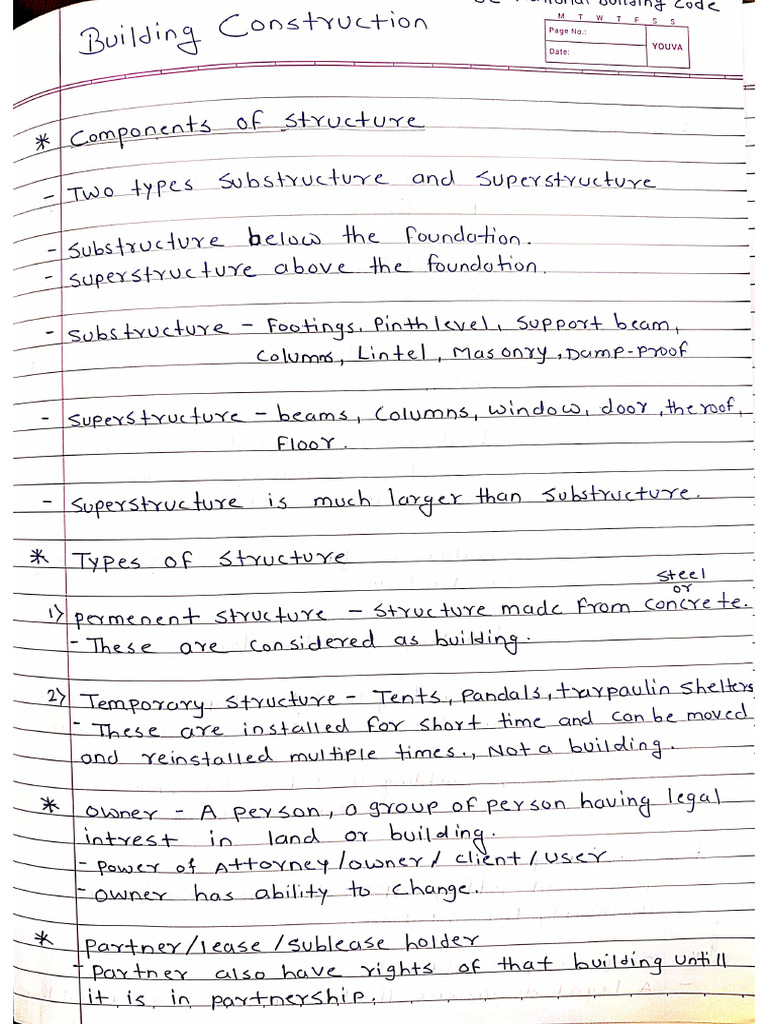 National Building Code
Building Construction
M T W T F S S
Page No.:
Date:
YOUVA
* Components of structure
- Two types substructure and superstructure
- substructure below the foundation.
- superstructure above the foundation.
- substructure - Footings, Pinth level, support beam,
columns, Lintel, Masonry, Dump-proof
- superstructure - beams, columns, window, door, the roof,
Floor.
- superstructure is much larger than substructure.
* Types of structure
steel
or
1) permenent structure - structure made from concrete.
- These are considered as building.
2) Temporary structure - Tents, pandals, tarpaulin shelters
- These are installed for short time and can be moved
and reinstalled multiple times., Not a building.
* owner - A person, a group of person having legal
intrest in land or building.
- power of Attorney/owner/client/user
- owner has ability to change.
* partner/lease/sublease holder
- partner also have rights of that building untill
it is in partnership.